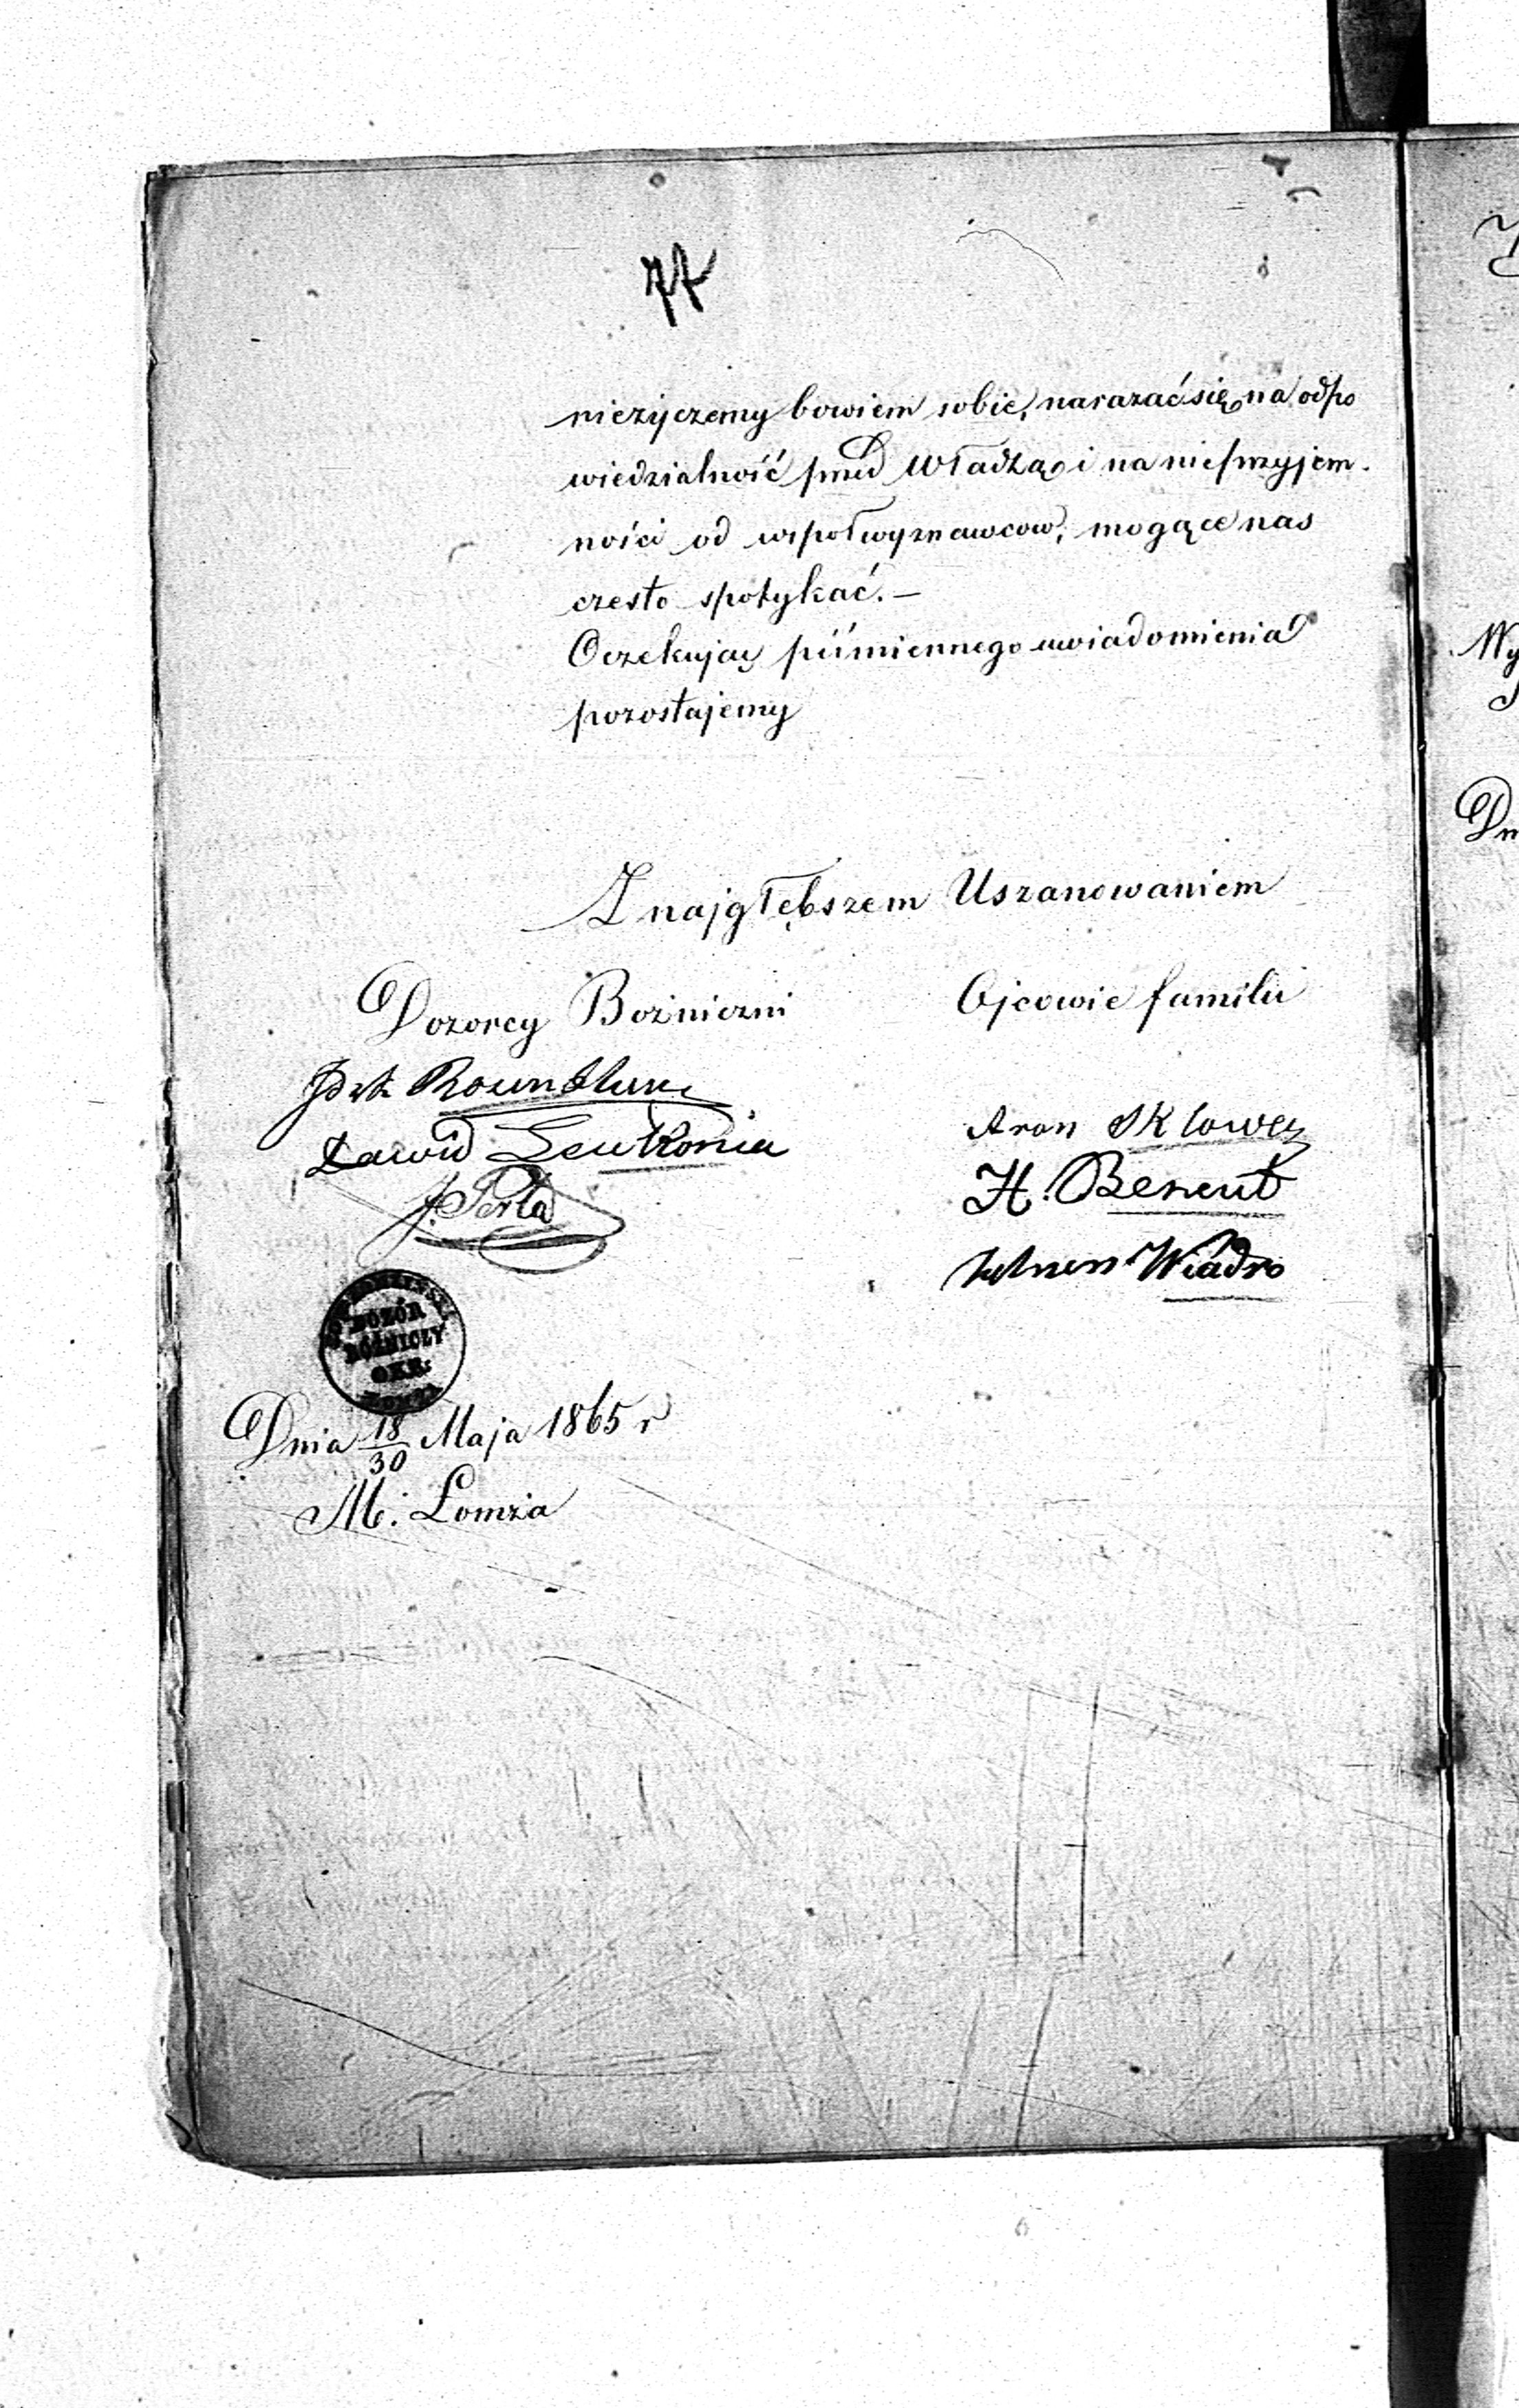 77
nieżyczemy bowiem sobie, narazać się na odpo
wiedzialność przed Władzą i na nieprzyjem.
ności od wspołwyznawcow, mogące nas
często spotykać. —
Oczekując piśmiennego uwiadomienia
pozostajemy
Z najgłębszem Uszanowaniem
Dozorcy Bożniczni
Ojcowie familii
Dawid
J. Perła
Aron
H.
Wiadro
DOZÓR
BÓŻNICZY
OKR:
Dnia 18/30 Maja 1865 r
M. Łomża
Wy
Dn